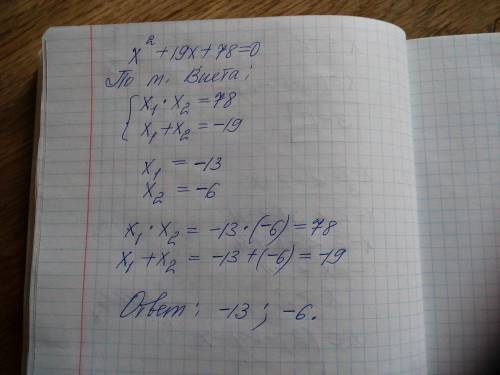 x² + 19x + 78 = 0
По т. Виета:
{ x₁ · x₂ = 78
x₁ + x₂ = -19
x₁ = -13
x₂ = -6
x₁ · x₂ = -13 · (-6) = 78
x₁ + x₂ = -13 + (-6) = -19
Ответ: -13; -6.